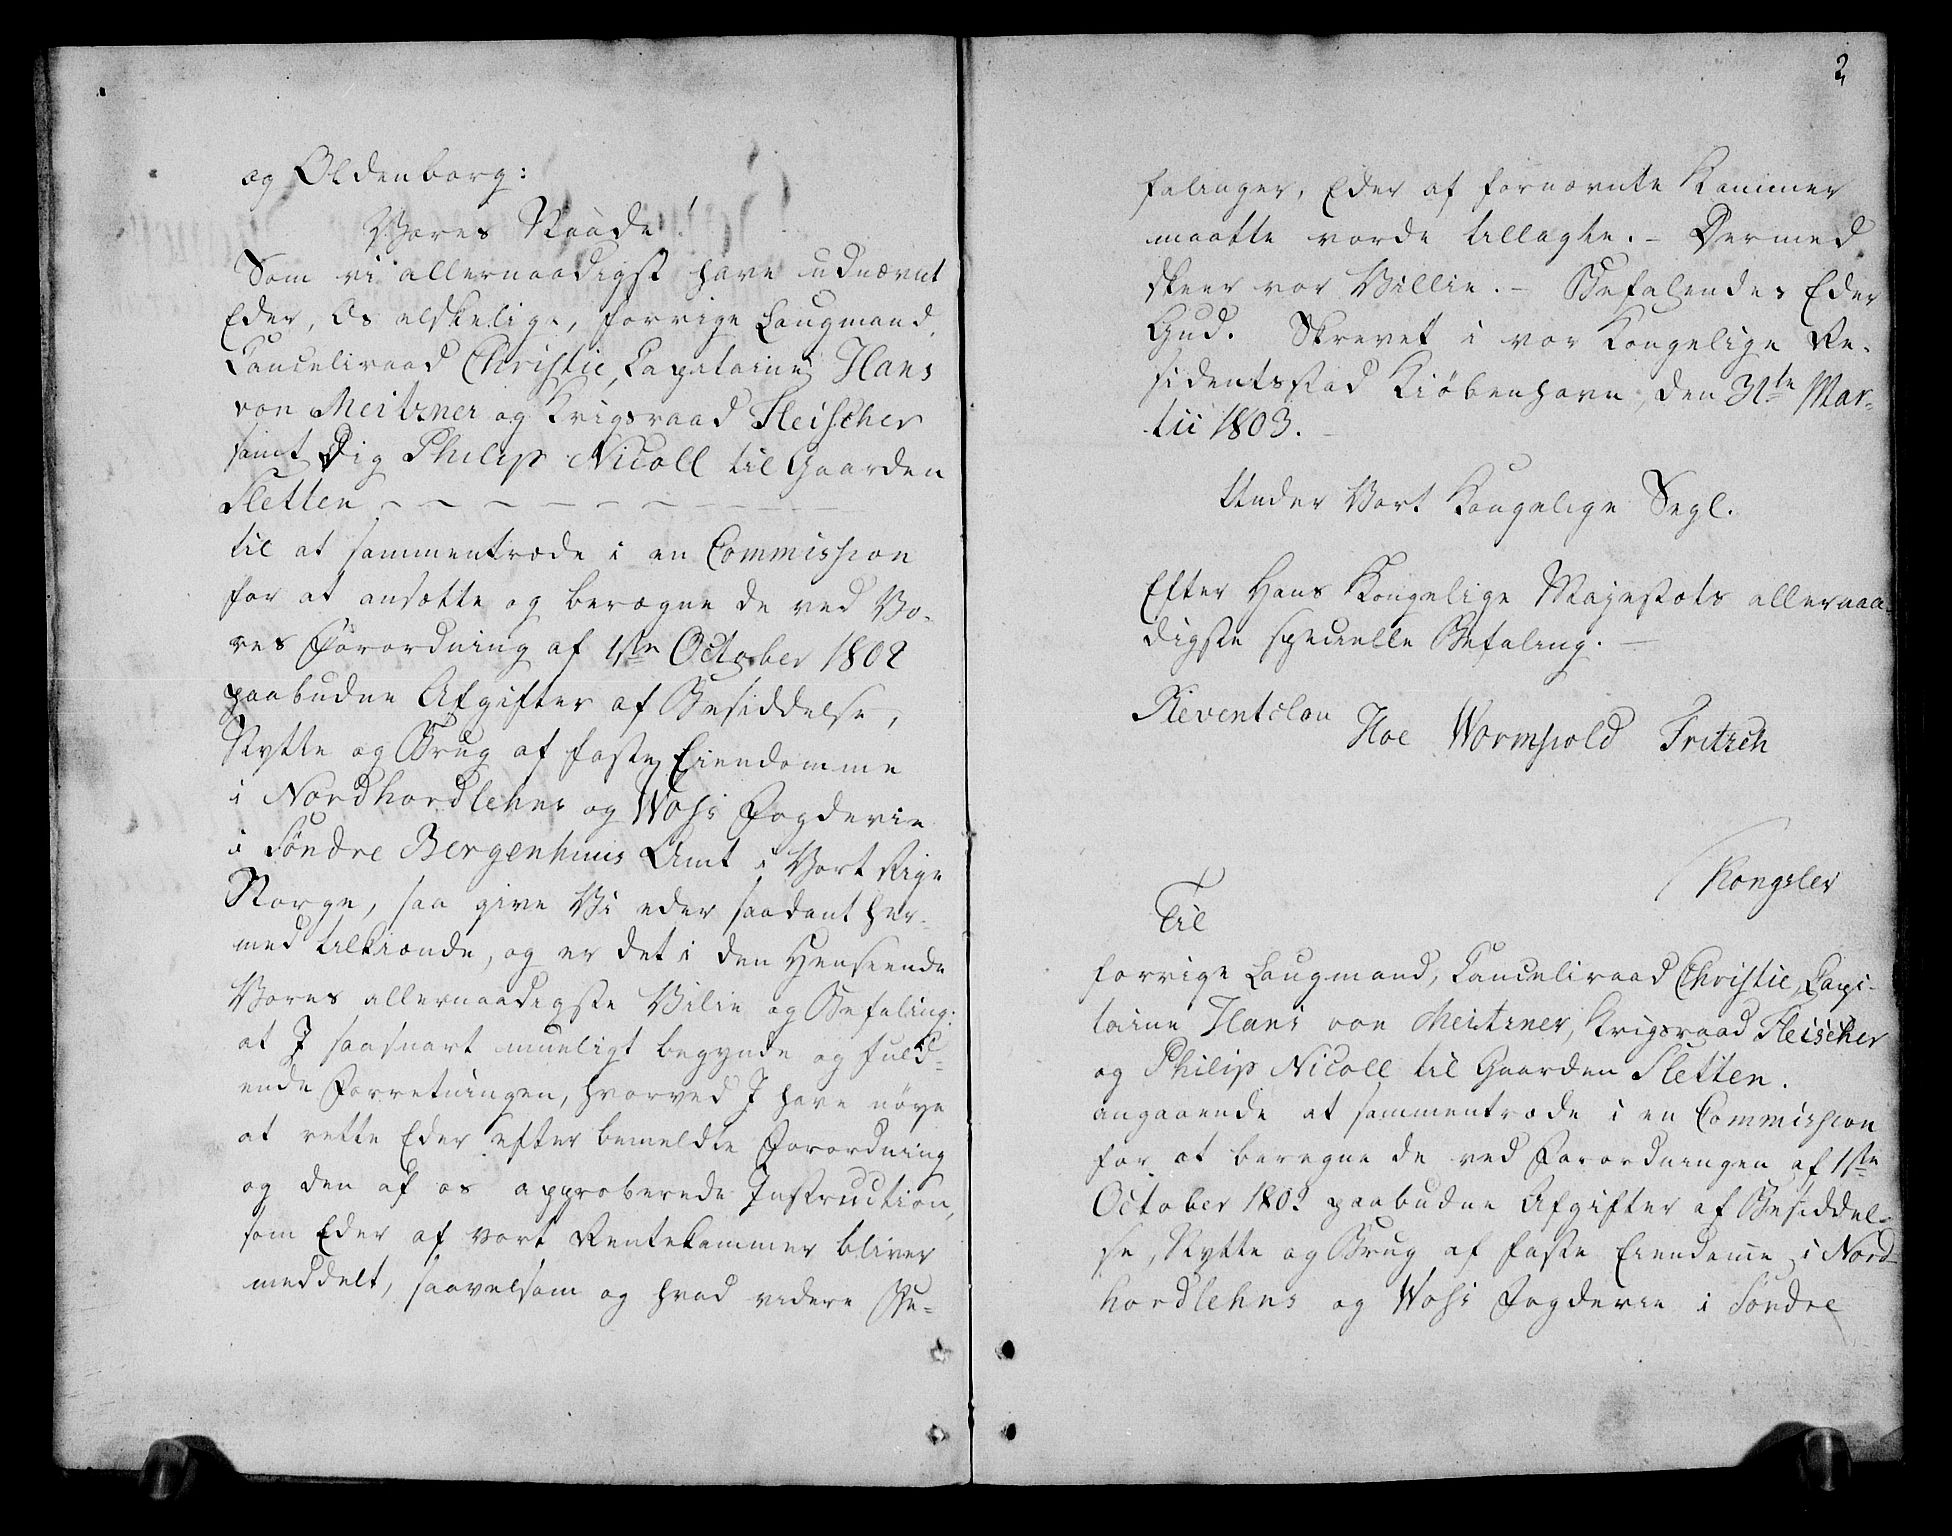 og Oldenborg:
Vores Naade!
Som vi allernaadigst have udnævnt
Eder, Os elskelige, forrige Laugmand,
Cancelieraad Christie, Capitaine Hans
von Meitzner og Krigsraad Fleischer
samt Dig Philip Nicoll til Gaarden
Sletten
til at sammentræde i en Commission
for at ansætte og beregne de ved Vo-
res Forordning af 1ste October 1802
paabudne Afgifter af Besiddelse,
Nytte og Brug af faste Eiendomme
i Nordhordlehns og Woss Fogderie
i Søndre Bergenhuus Amt i Vort Rige
Norge, saa give Vi eder saadant her-
med tilkiende, og er det i den Henseende
Vores allernaadigste Vilie og Befaling:
at I saasnart mueligt begynde og fuld-
ende Forretningen, hvorved I have nøye
at rette Eder efter bemeldte Forordning
og den af os approberede Instruction,
som Eder af vort Rentekammer bliver
meddelt, saavelsom og hvad videre Be-
2
falinger, Eder af fornævnte Kammer
maatte vorde tillagte. - Dermed
skeer vor Villie. - Befalendes Eder
Gud. Skrevet i vor Kongelige Re-
sidentsstad Kiöbenhavn, den 31te Mar-
tii 1803.
Under Vort Kongelige Segl.
Efter Hans Kongelige Majestæts allernaa-
digste specielle Befaling. -
Reventclou Hoe Wormsiold Fritzch
Kongslev
Til
forrige Laugmand, Cancelieraad Christie, Capi-
taine Hans von Meitzner, Krigsraad Fleischer
og Philip Nicoll til Gaarden Sletten.
angaaende at sammentræde i en Commission
for at beregne de ved Forordningen af 1ste
October 1802 paabudne Afgifter af Besiddel-
se, Nytte og Brug af faste Eiendome i Nord-
hordlehns og Woss Fogderie i Söndre